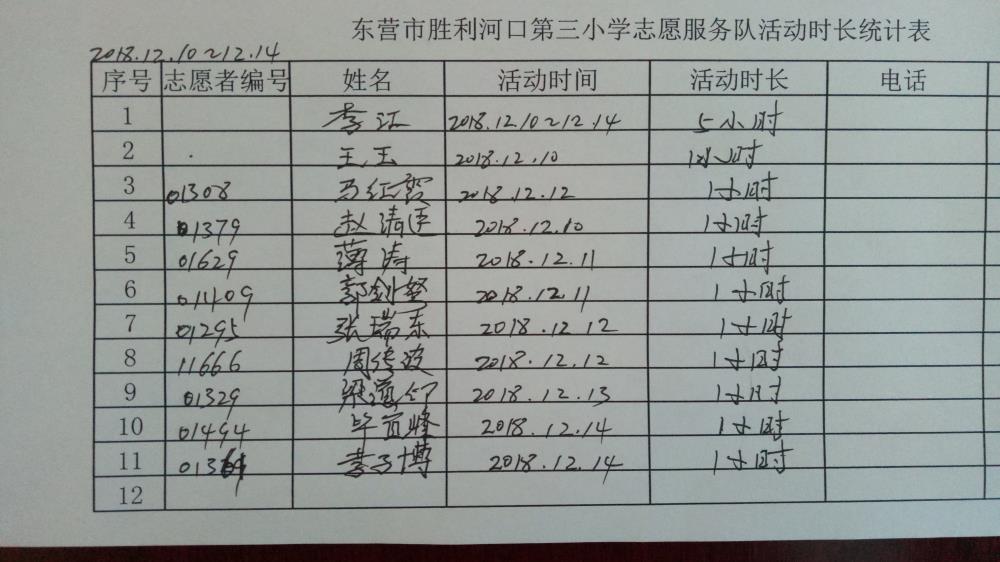 东营市胜利河口第三小学志愿服务队活动时长统计表
2018.12.10~12.14
序号 志愿者编号 姓名 活动时间 活动时长 电话
1 李江 2018.12.10~12.14 5小时
2 王玉 2018.12.10 小时
3 01308 马红霞 2018.12.12 1小时
4 01379 赵清 2018.12.10 1小时
5 01629 薄涛 2018.12.11 1小时
6 01409 郭剑 2018.12.11 1小时
7 01295 张瑞东 2018.12.12 1小时
8 11666 周传波 2018.12.12 1小时
9 01329 梁道 2018.12.13 1小时
10 01494 毕宜峰 2018.12.14 1小时
11 013 李子博 2018.12.14 1小时
12